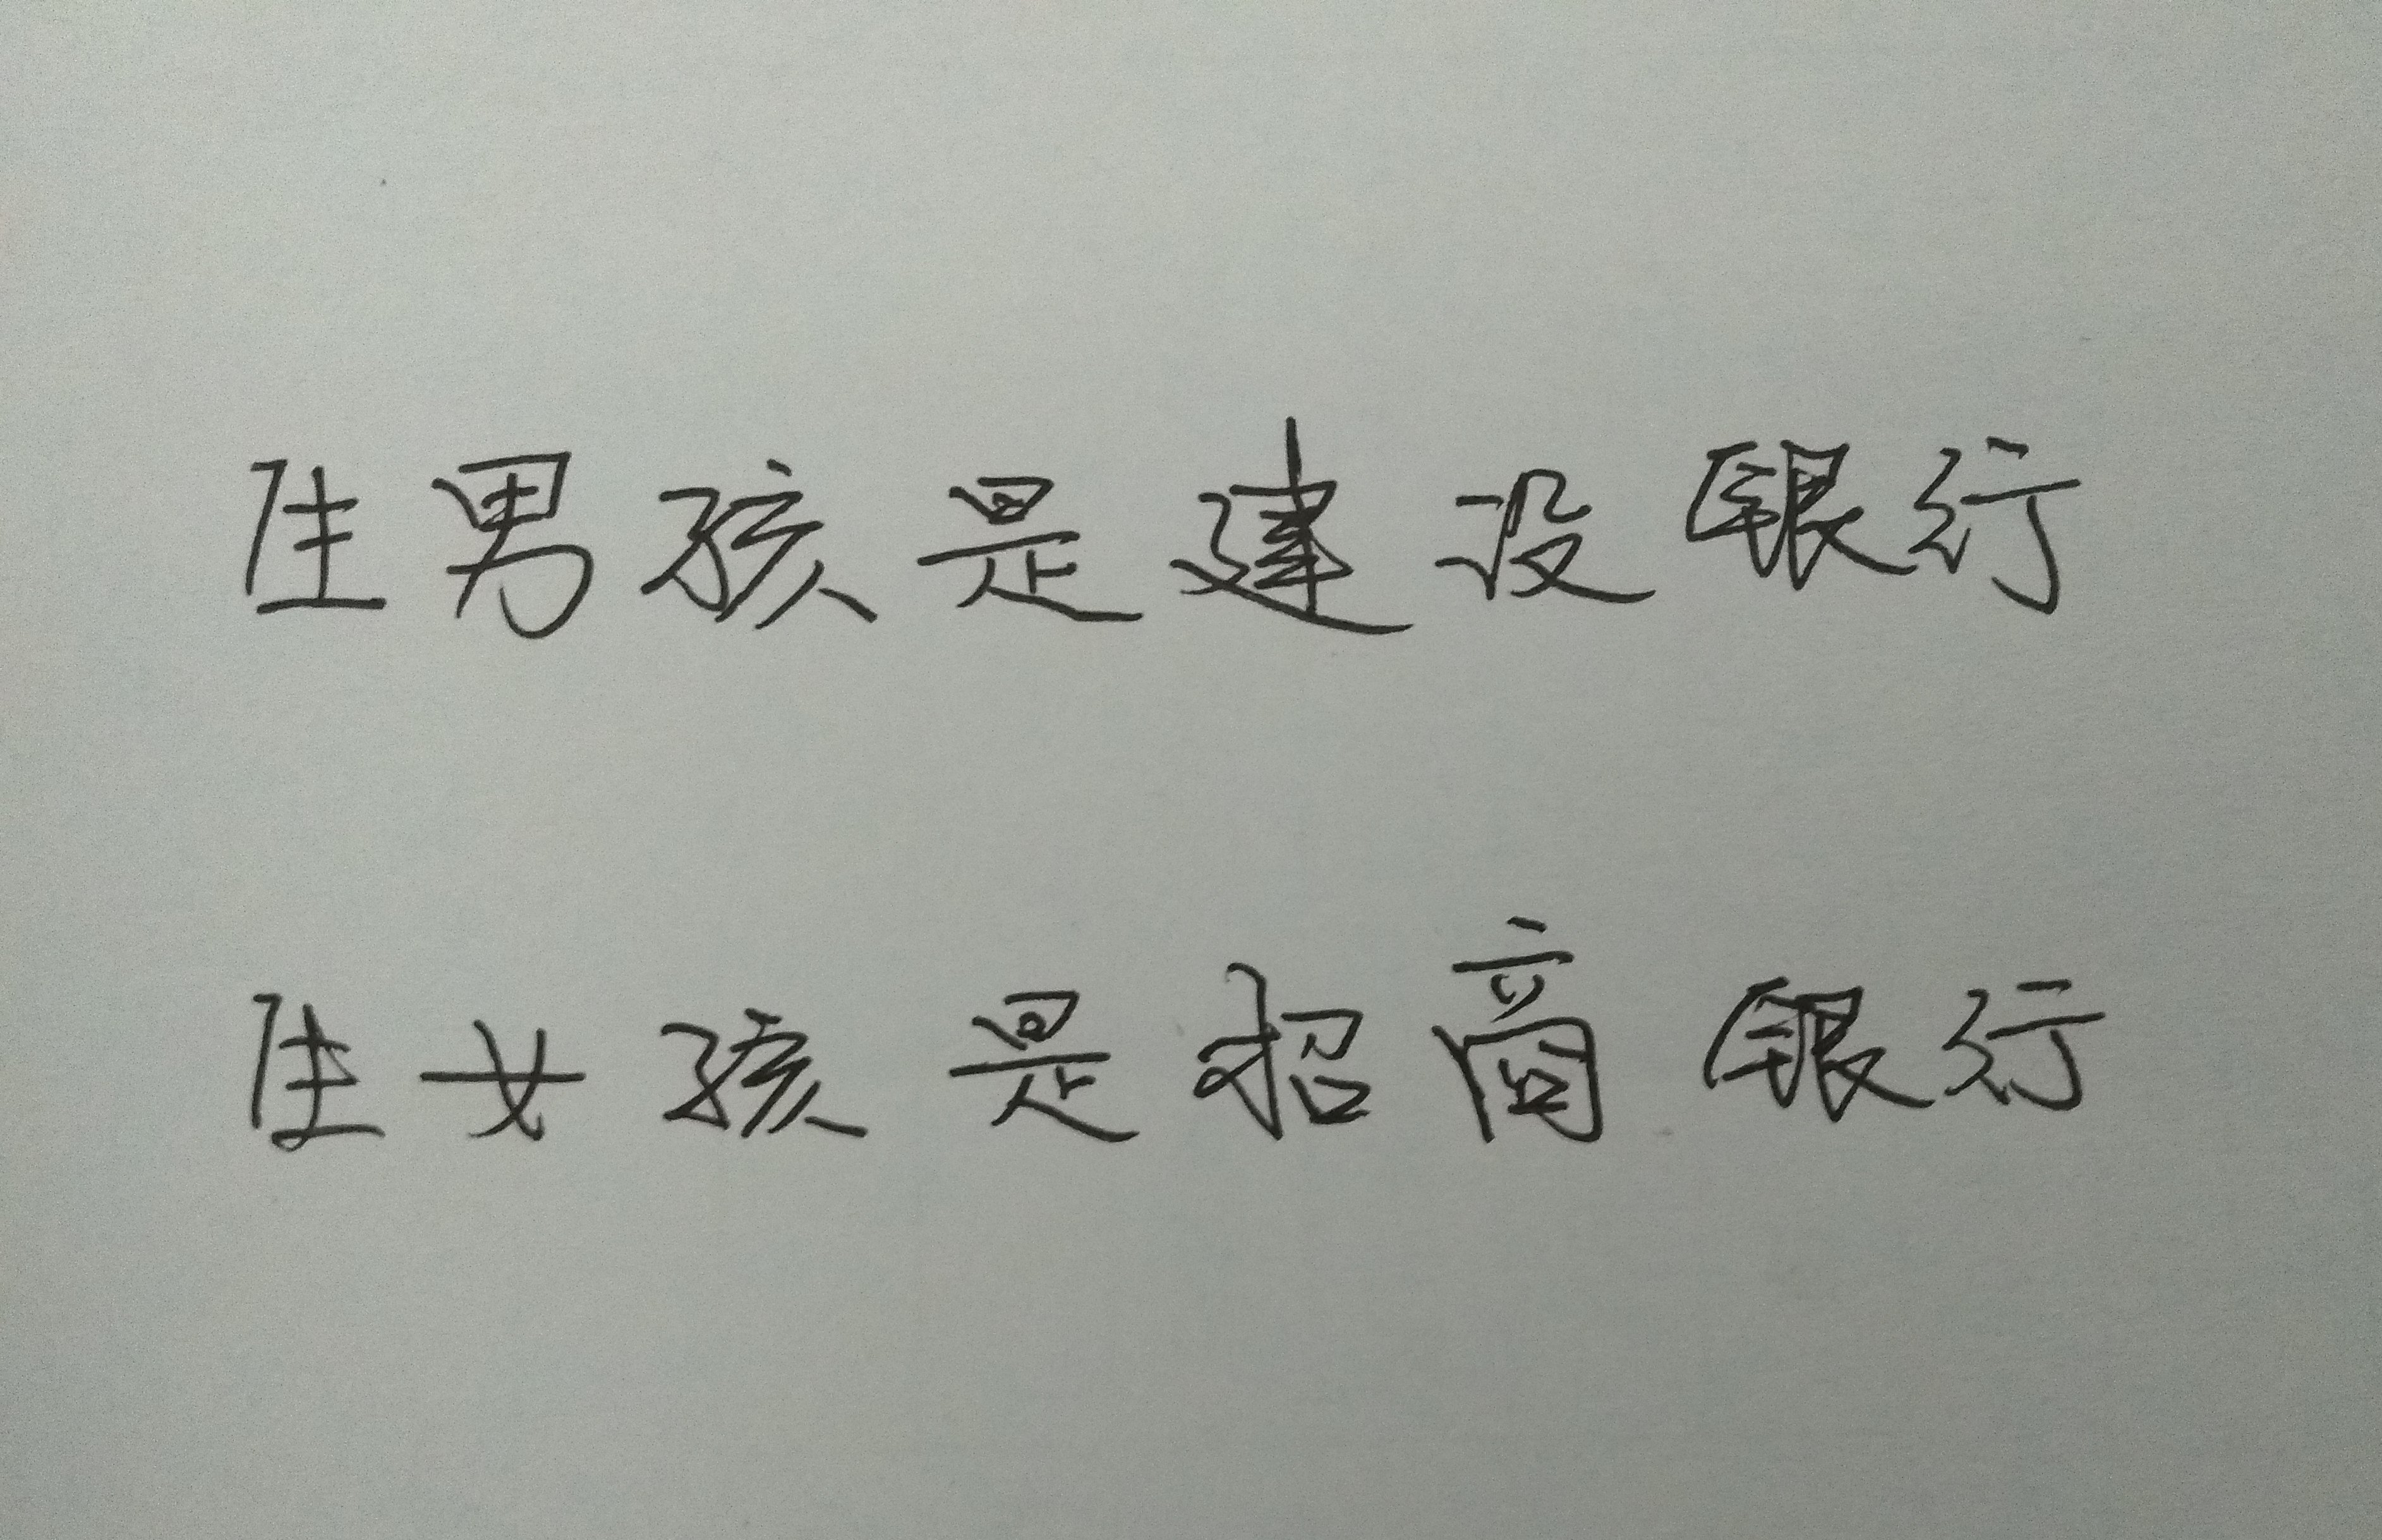 生男孩是建设银行
生女孩是招商银行